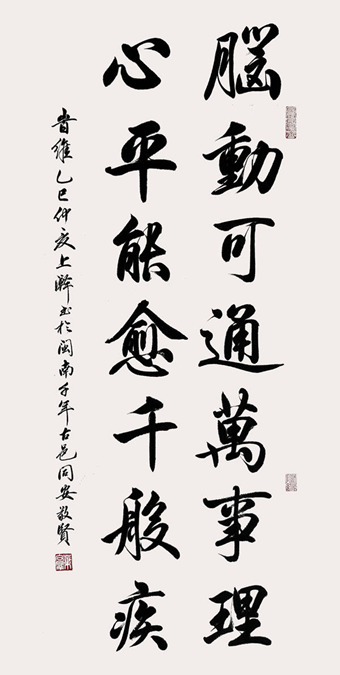 腦動可通萬事理
心平能愈千般疾
時維乙巳仲夏上澣書於閩南千年古邑同安敬賢